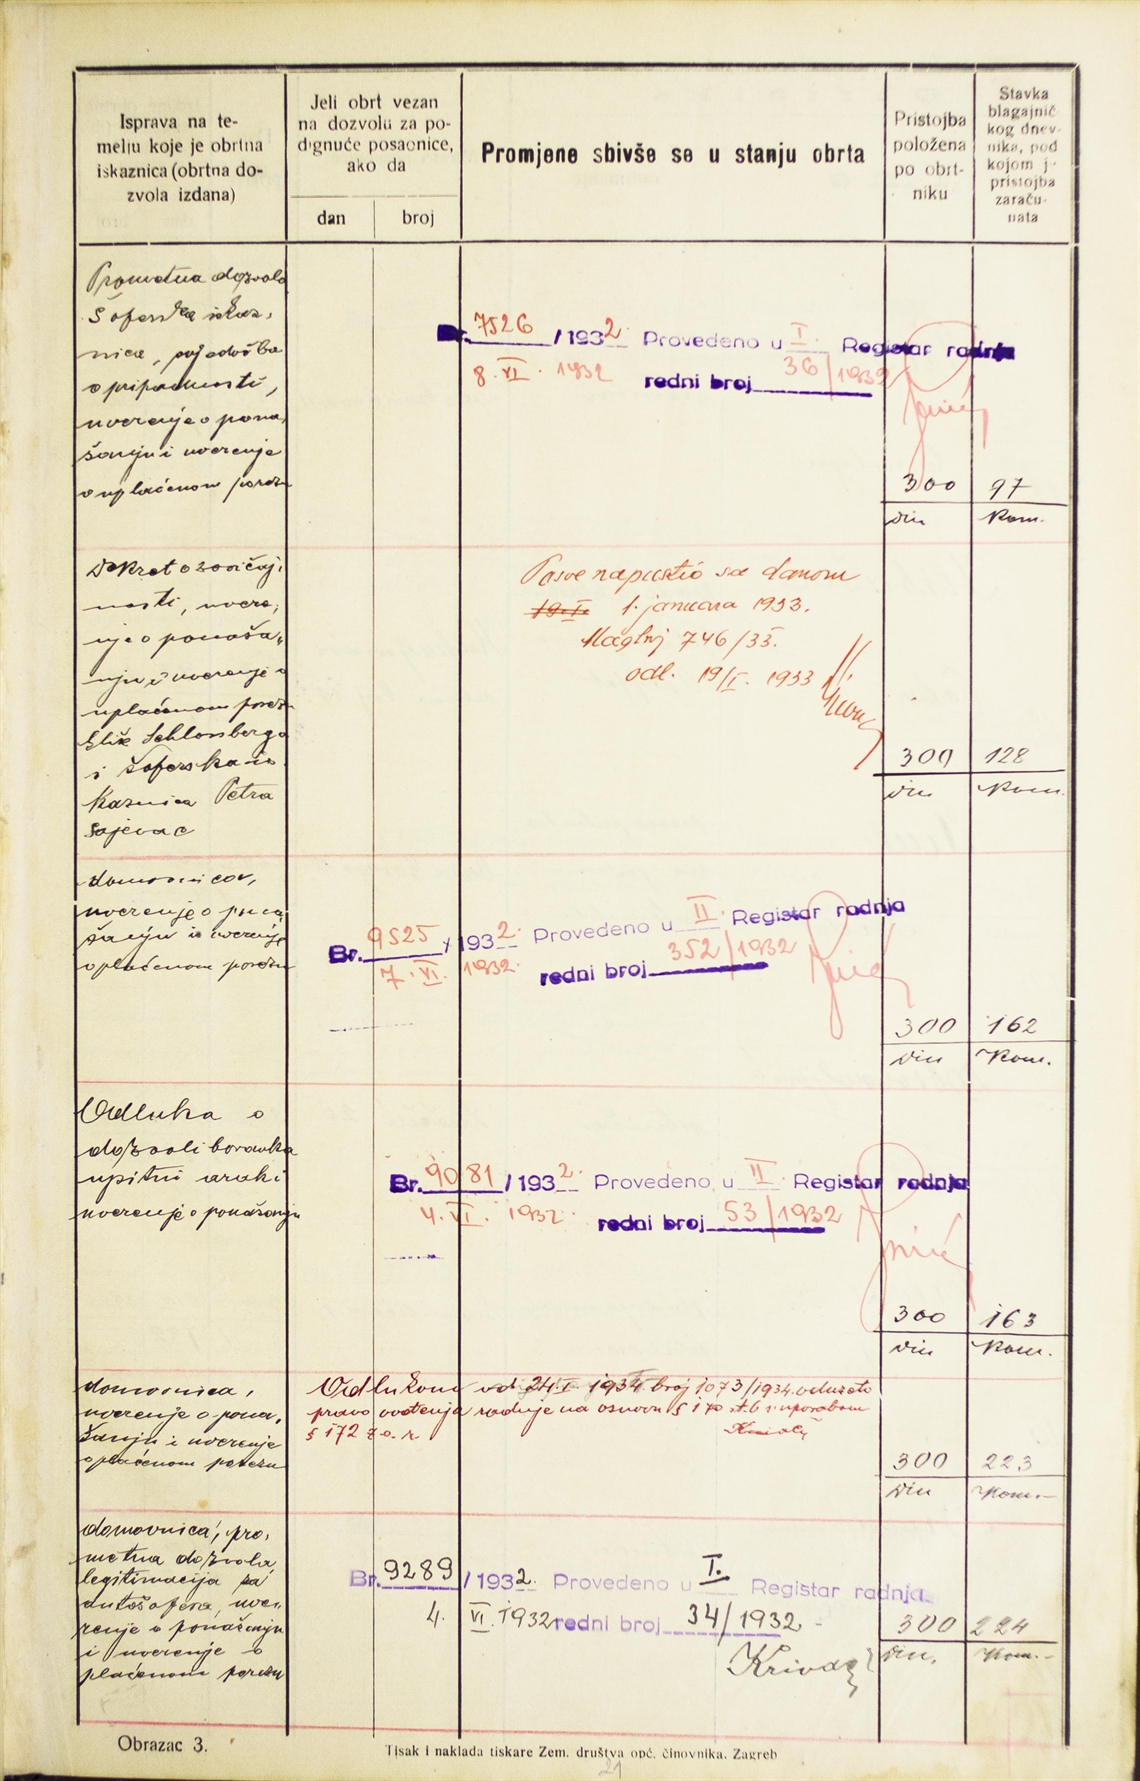 Isprava na te-
melju koje je obrtna
iskaznica (obrtna do-
zvola izdana)
Jeli obrt vezan
na dozvolu za po-
dignuće posaonice,
ako da
dan
broj
Promjene sbivše se u stanju obrta
Pristojba
položena
po obrt-
niku
Stavka
blagajnič
kog dnev-
nika, pod
kojom j
pristojba
zaraču-
nata
Prometna dozvola
Šoferska iskaz,
nica, svjedočba
o pripadnosti,
uverenje o pona,
šanju i uverenje
o uplaćenom porezu
Br. 7526 /1932 Provedeno u I. Registar radnja
8. VI. 1932 redni broj 36/1932
300 97
din Kom.
Dekret o zavičaj,
nosti, uvere,
nje o ponaša,
nju i uverenje o
uplaćenom porezu
Schlossberga
i Šoferska is
kaznica Petra
Sajevac
Posve napustio sa danom
19.I. 1. januara 1933.
746/33.
odl. 19/I. 1933
300 128
din Kom.
domovnica,
uverenje o pona
šanju i uverenje
o plaćenom porezu
Br. 9525 /1932. Provedeno u II. Registar radnja
7. VI. 1932. redni broj 352/1932
300 162
din Kom.
Odluka o
dozvoli boravka
upitni arak i
uverenje o ponašanju
Br. 9081 /1932. Provedeno u II Registar radnja
4. VI. 1932. redni broj 53/1932
300 163
din Kom.
domovnica,
uverenje o pona,
šanju i uverenje
o plaćenom porezu
Odlukom od 24.I. 1934 broj 1073/1934. oduzeto
pravo vođenja radnje na osnovu § 170 st. 6 s uporabom
§ 172 z. o. r.
300 223
Din Kom.-
domovnica, pro,
metna dozvola,
legitimacija za
autošofera, uve,
renje o ponašanju
i uverenje o
plaćenom porezu
Br. 9289 /1932. Provedeno u I. Registar radnja
4. VI. 1932 redni broj 34/1932 -
Krivac
300 224
din. Kom.-
Obrazac 3.
Tisak i naklada tiskare Zem. društva opć. činovnika, Zagreb
21